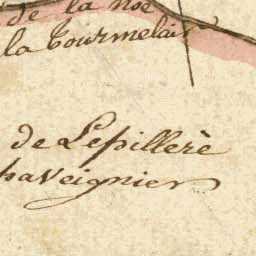 de la Noë
la Tourmelais
de Lepillere
haveignier